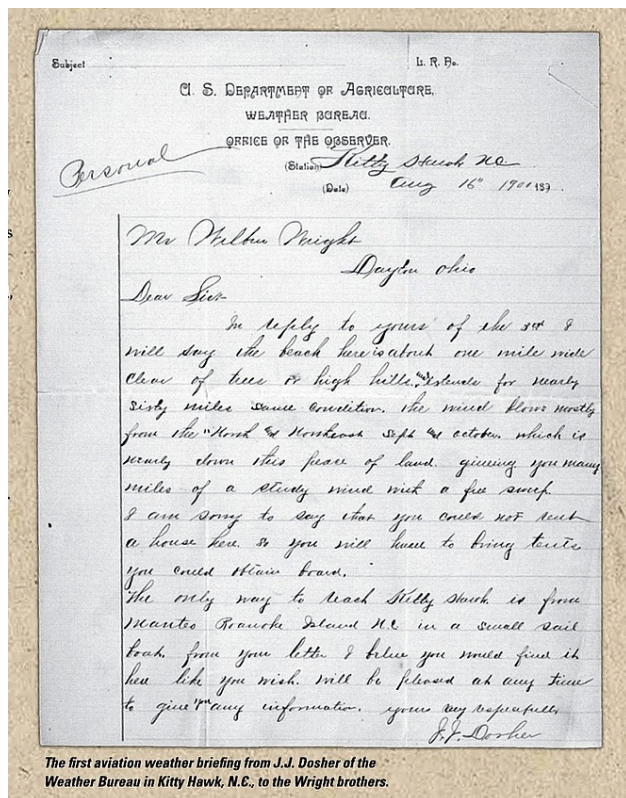 Subject
L. R. No.
U. S. DEPARTMENT OF AGRICULTURE,
WEATHER BUREAU.
OFFICE OF THE OBSERVER.
Personal
(Station) Kitty Hawk NC
(Date) Aug 16" 1900 189
Mr Wilbur Wright
Dayton Ohio
Dear Sir
In reply to yours of the 3rd I
will say the beach here is about one mile wide
clear of trees or high hills, and extends for nearly
sixty miles same condition. the wind blows mostly
from the North and Northeast Sept and October. which is
nearly down this peace of land. giveing you many
miles of a study wind with a free sweep.
I am sorry to say that you could not rent
a house here. so you will have to bring tents
you could obtain board.
The only way to reach Kitty Hawk is from
Manteo Roanoke Island N.C in a small sail
boat. from your letter I believe you would find it
here like you wish. will be pleased at any time
to give you any information. yours very respectfully
J.J. Dosher
The first aviation weather briefing from J.J. Dosher of the
Weather Bureau in Kitty Hawk, N.C., to the Wright brothers.